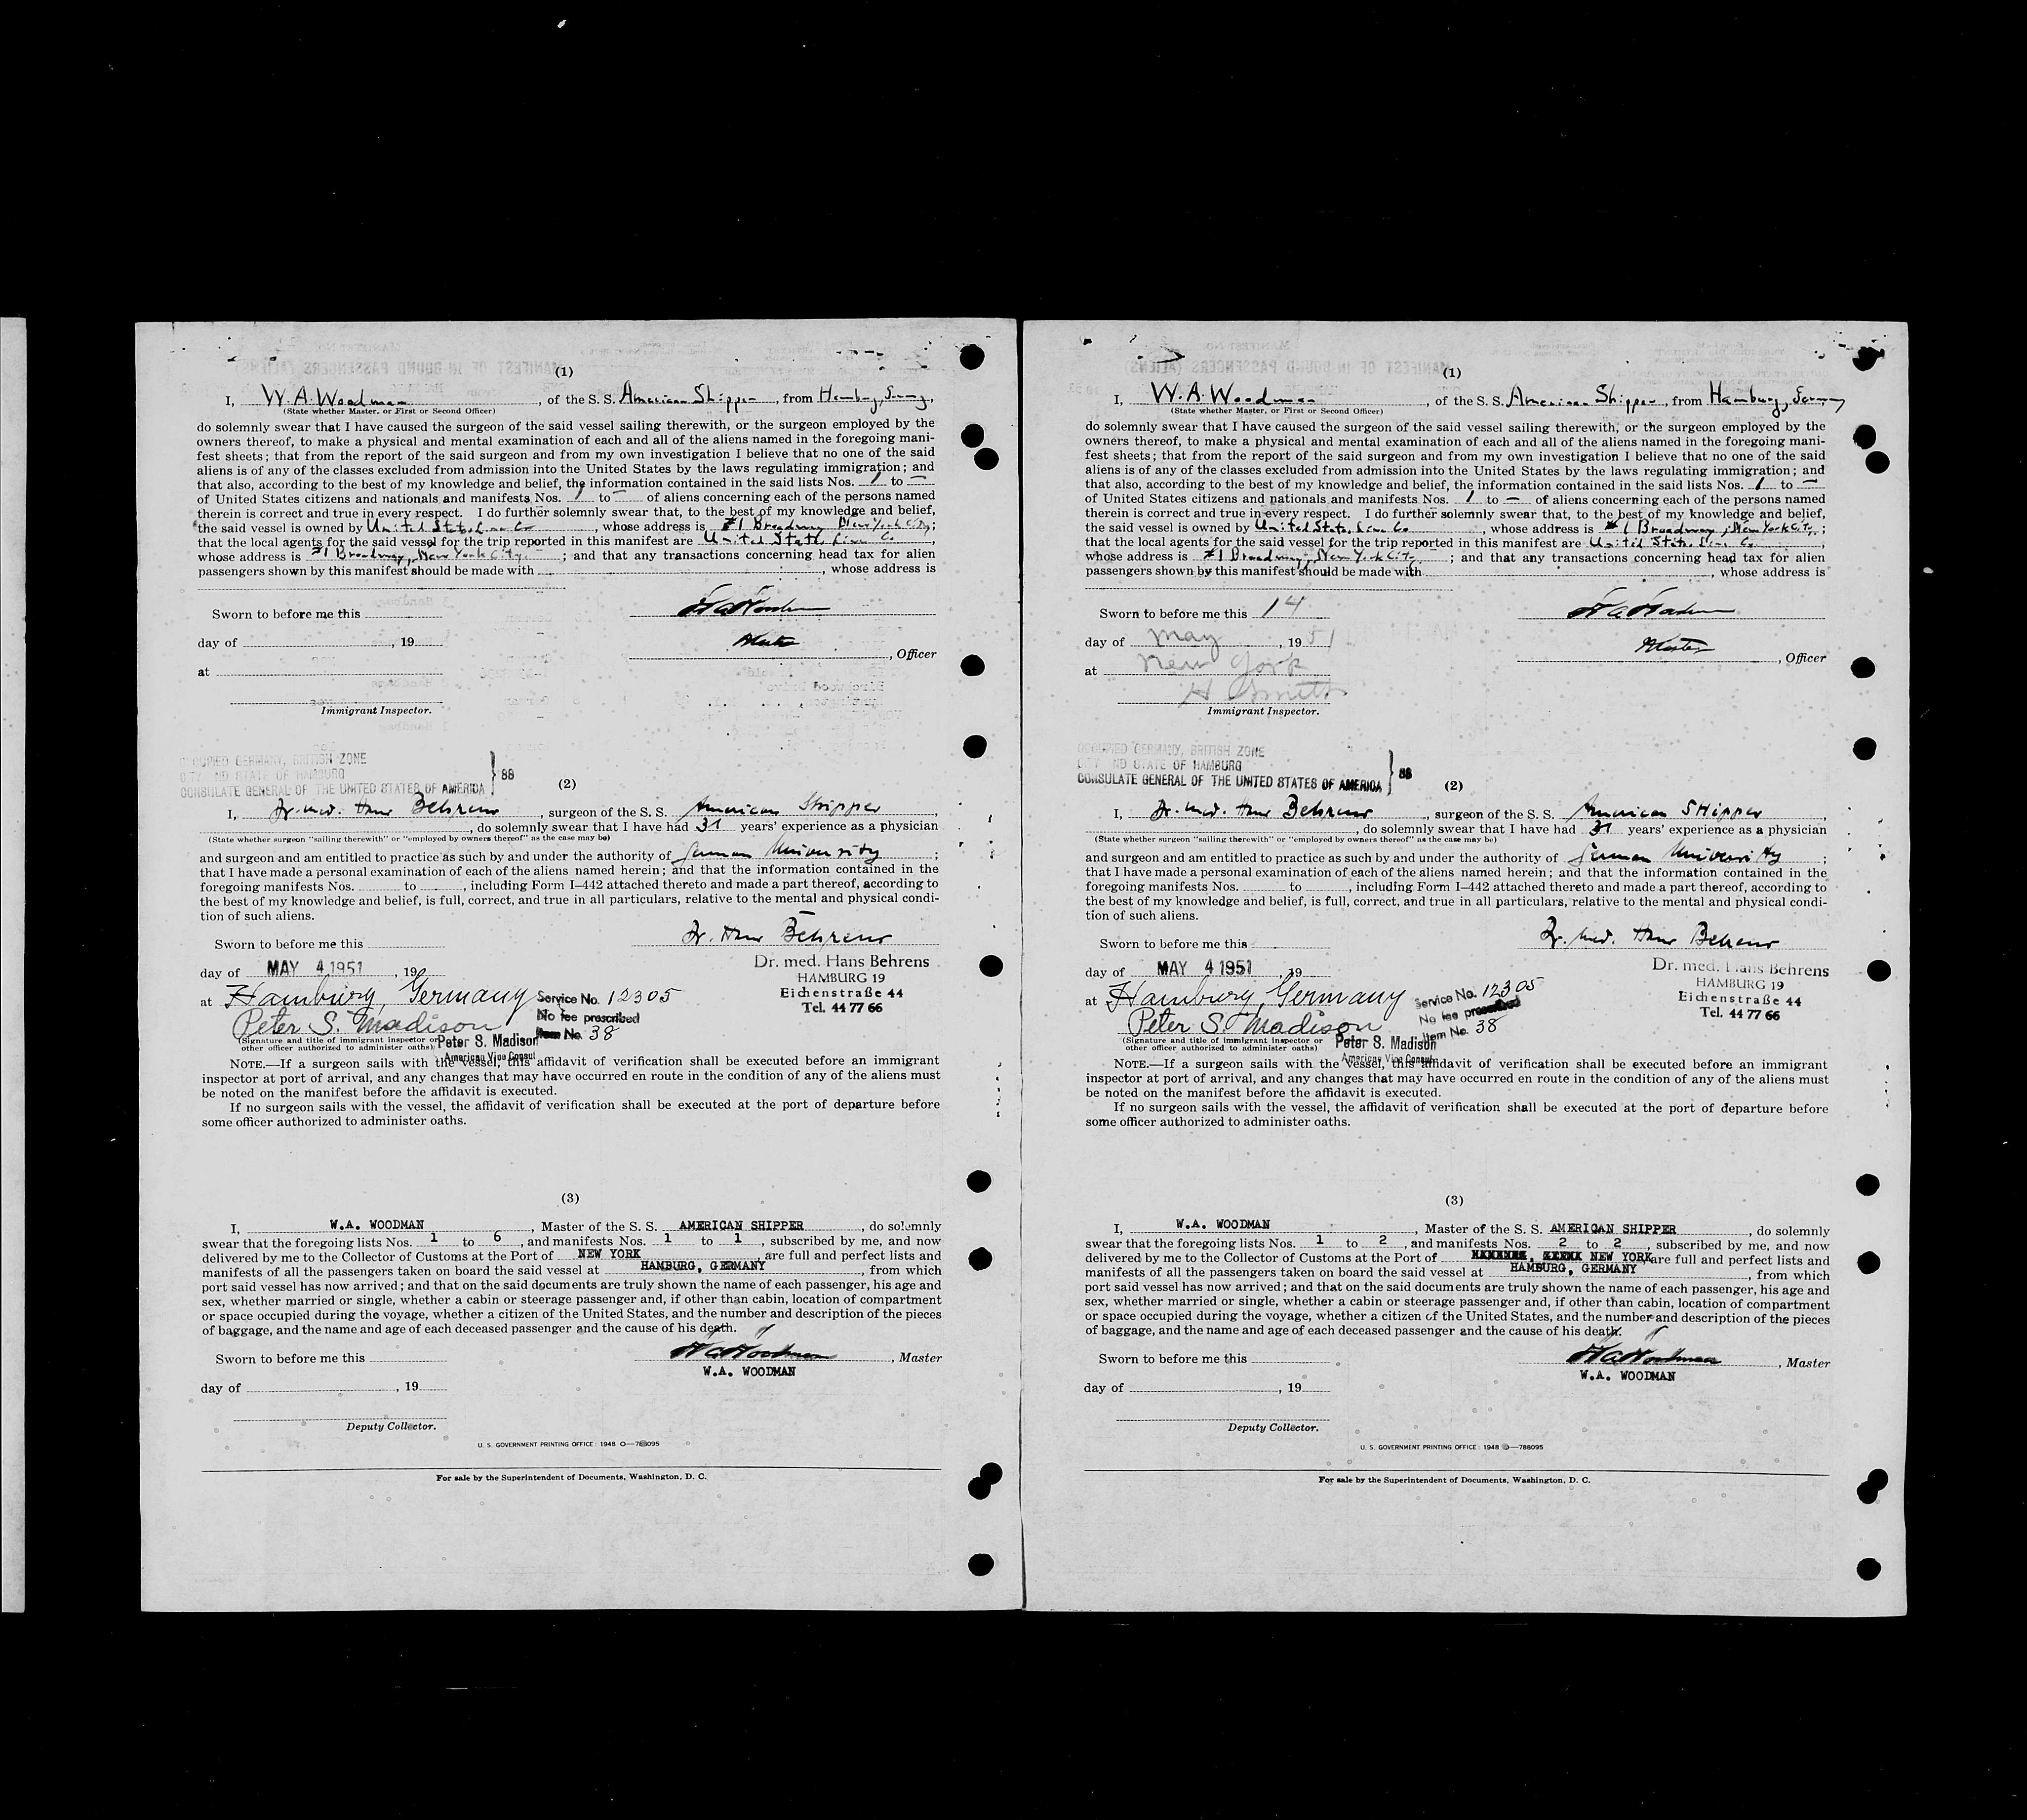 (1)
I, W. A. Woodman, of the S. S. American Shipper, from Hamburg, Germany,
(State whether Master, or First or Second Officer)
do solemnly swear that I have caused the surgeon of the said vessel sailing therewith, or the surgeon employed by the
owners thereof, to make a physical and mental examination of each and all of the aliens named in the foregoing mani-
fest sheets; that from the report of the said surgeon and from my own investigation I believe that no one of the said
aliens is of any of the classes excluded from admission into the United States by the laws regulating immigration; and
that also, according to the best of my knowledge and belief, the information contained in the said lists Nos. 1 to —
of United States citizens and nationals and manifests Nos. 1 to — of aliens concerning each of the persons named
therein is correct and true in every respect. I do further solemnly swear that, to the best of my knowledge and belief,
the said vessel is owned by United States Line Co, whose address is #1 Broadway New York City;
that the local agents for the said vessel for the trip reported in this manifest are United States Line Co.,
whose address is #1 Broadway, New York City.; and that any transactions concerning head tax for alien
passengers shown by this manifest should be made with , whose address is
Sworn to before me this
day of , 19
Master, Officer
at
Immigrant Inspector.
OCCUPIED GERMANY, BRITISH ZONE
CITY AND STATE OF HAMBURG
CONSULATE GENERAL OF THE UNITED STATES OF AMERICA } SS
(2)
I, Dr. med. Hans Behrens, surgeon of the S. S. American Shipper,
, do solemnly swear that I have had 31 years' experience as a physician
(State whether surgeon "sailing therewith" or "employed by owners thereof" as the case may be)
and surgeon and am entitled to practice as such by and under the authority of German University;
that I have made a personal examination of each of the aliens named herein; and that the information contained in the
foregoing manifests Nos. to , including Form I–442 attached thereto and made a part thereof, according to
the best of my knowledge and belief, is full, correct, and true in all particulars, relative to the mental and physical condi-
tion of such aliens.
Sworn to before me this
Dr. Hans Behrens
Dr. med. Hans Behrens
day of MAY 4 1951, 19
HAMBURG 19
Eichenstraße 44
Tel. 44 77 66
at Hamburg, Germany
Service No. 12305
No fee prescribed
Item No. 38
Peter S. Madison
(Signature and title of immigrant inspector or
other officer authorized to administer oaths)
Peter S. Madison
American Vice Consul
NOTE.—If a surgeon sails with the vessel, this affidavit of verification shall be executed before an immigrant
inspector at port of arrival, and any changes that may have occurred en route in the condition of any of the aliens must
be noted on the manifest before the affidavit is executed.
If no surgeon sails with the vessel, the affidavit of verification shall be executed at the port of departure before
some officer authorized to administer oaths.
(3)
I, W.A. WOODMAN, Master of the S. S. AMERICAN SHIPPER, do solemnly
swear that the foregoing lists Nos. 1 to 6, and manifests Nos. 1 to 1, subscribed by me, and now
delivered by me to the Collector of Customs at the Port of NEW YORK, are full and perfect lists and
manifests of all the passengers taken on board the said vessel at HAMBURG, GERMANY, from which
port said vessel has now arrived; and that on the said documents are truly shown the name of each passenger, his age and
sex, whether married or single, whether a cabin or steerage passenger and, if other than cabin, location of compartment
or space occupied during the voyage, whether a citizen of the United States, and the number and description of the pieces
of baggage, and the name and age of each deceased passenger and the cause of his death.
Sworn to before me this
W A Woodman, Master
W.A. WOODMAN
day of , 19
Deputy Collector.
U. S. GOVERNMENT PRINTING OFFICE: 1948 O—788095
For sale by the Superintendent of Documents, Washington, D. C.
(1)
I, W. A. Woodman, of the S. S. American Shipper, from Hamburg, Germany
(State whether Master, or First or Second Officer)
do solemnly swear that I have caused the surgeon of the said vessel sailing therewith, or the surgeon employed by the
owners thereof, to make a physical and mental examination of each and all of the aliens named in the foregoing mani-
fest sheets; that from the report of the said surgeon and from my own investigation I believe that no one of the said
aliens is of any of the classes excluded from admission into the United States by the laws regulating immigration; and
that also, according to the best of my knowledge and belief, the information contained in the said lists Nos. 1 to —
of United States citizens and nationals and manifests Nos. 1 to — of aliens concerning each of the persons named
therein is correct and true in every respect. I do further solemnly swear that, to the best of my knowledge and belief,
the said vessel is owned by United States Line Co, whose address is #1 Broadway, New York City;
that the local agents for the said vessel for the trip reported in this manifest are United States Line Co.,
whose address is #1 Broadway, New York City; and that any transactions concerning head tax for alien
passengers shown by this manifest should be made with , whose address is
Sworn to before me this 14
day of May, 1951
Master, Officer
at New York
H Smith
Immigrant Inspector.
OCCUPIED GERMANY, BRITISH ZONE
CITY AND STATE OF HAMBURG
CONSULATE GENERAL OF THE UNITED STATES OF AMERICA } SS
(2)
I, Dr. med. Hans Behrens, surgeon of the S. S. American SHipper,
, do solemnly swear that I have had 31 years' experience as a physician
(State whether surgeon "sailing therewith" or "employed by owners thereof" as the case may be)
and surgeon and am entitled to practice as such by and under the authority of German University;
that I have made a personal examination of each of the aliens named herein; and that the information contained in the
foregoing manifests Nos. to , including Form I–442 attached thereto and made a part thereof, according to
the best of my knowledge and belief, is full, correct, and true in all particulars, relative to the mental and physical condi-
tion of such aliens.
Sworn to before me this
Dr. med. Hans Behrens
Dr. med. Hans Behrens
day of MAY 4 1951, 19
HAMBURG 19
Eichenstraße 44
Tel. 44 77 66
at Hamburg, Germany
Service No. 12305
No fee prescribed
Item No. 38
Peter S. Madison
(Signature and title of immigrant inspector or
other officer authorized to administer oaths)
Peter S. Madison
American Vice Consul
NOTE.—If a surgeon sails with the vessel, this affidavit of verification shall be executed before an immigrant
inspector at port of arrival, and any changes that may have occurred en route in the condition of any of the aliens must
be noted on the manifest before the affidavit is executed.
If no surgeon sails with the vessel, the affidavit of verification shall be executed at the port of departure before
some officer authorized to administer oaths.
(3)
I, W.A. WOODMAN, Master of the S. S. AMERICAN SHIPPER, do solemnly
swear that the foregoing lists Nos. 1 to 2, and manifests Nos. 2 to 2, subscribed by me, and now
delivered by me to the Collector of Customs at the Port of NEW YORK are full and perfect lists and
manifests of all the passengers taken on board the said vessel at HAMBURG, GERMANY, from which
port said vessel has now arrived; and that on the said documents are truly shown the name of each passenger, his age and
sex, whether married or single, whether a cabin or steerage passenger and, if other than cabin, location of compartment
or space occupied during the voyage, whether a citizen of the United States, and the number and description of the pieces
of baggage, and the name and age of each deceased passenger and the cause of his death.
Sworn to before me this
W A Woodman, Master
W.A. WOODMAN
day of , 19
Deputy Collector.
U. S. GOVERNMENT PRINTING OFFICE: 1948 O—788095
For sale by the Superintendent of Documents, Washington, D. C.